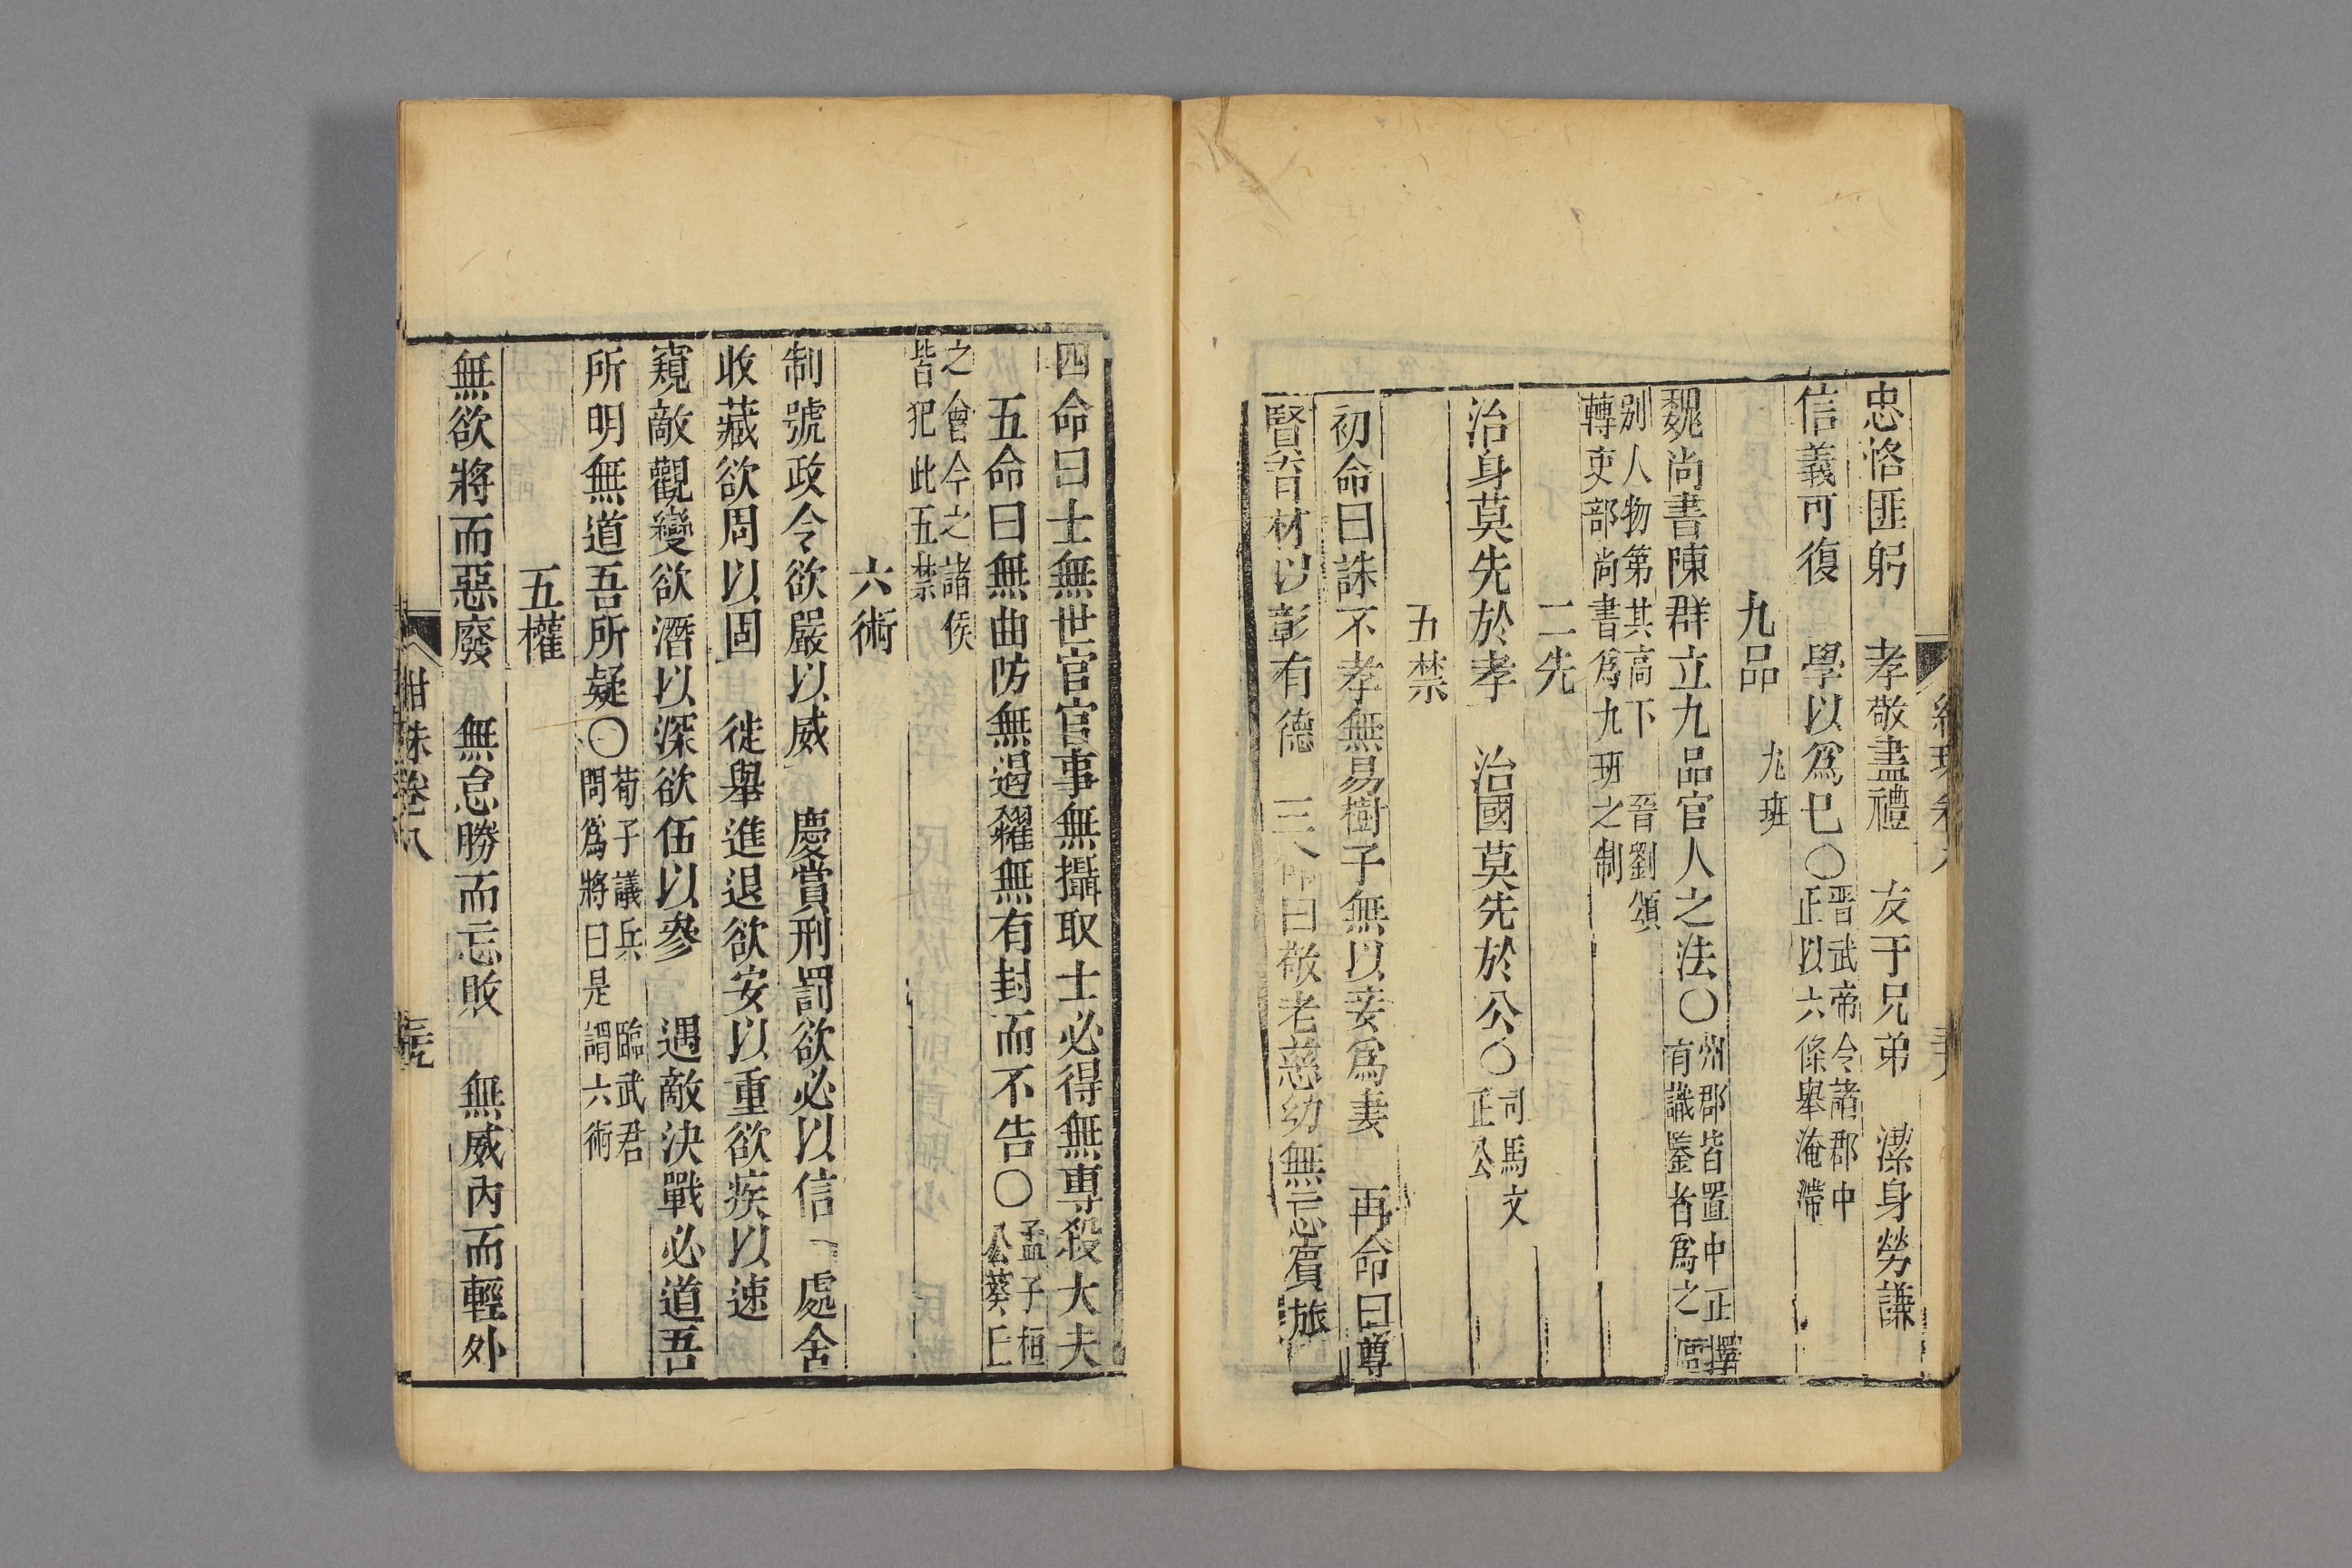 忠恪匪躬　孝敬盡禮　友于兄弟　潔身勞謙
信義可復　學以為已〇晋武帝令諸郡中正以六條舉淹滯
九品　九班
魏尚書陳群立九品官人之法〇州郡皆置中正擇有識鑒者為之區
别人物第其高下　晉劉頌轉吏部尚書為九班之制
二先
治身莫先於孝　治國莫先於公〇司馬文正公
五禁
初命曰誅不孝無易樹子無以妾為妻　再命曰尊
賢育材以彰有德　三命曰敬老慈幼無忘賓旅
四命曰士無世官官事無攝取士必得無專殺大夫
五命曰無曲防無遏糴無有封而不告〇孟子桓公葵丘
之會今之諸侯皆犯此五禁
六術
制號政令欲嚴以威　慶賞刑罰欲必以信　處舍
收藏欲周以固　徙舉進退欲安以重欲疾以速
窺敵觀變欲潛以深欲伍以參　遇敵決戰必道吾
所明無道吾所疑〇荀子議兵　臨武君問為將曰是謂六術
五權
無欲將而惡廢　無怠勝而忘敗　無威內而輕外
紺珠卷八